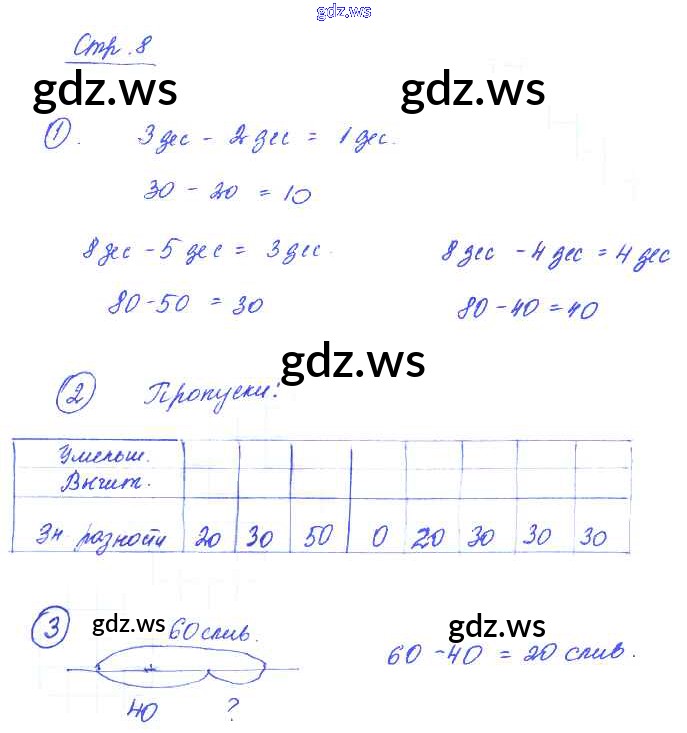 gdz.ws
Стр. 8
gdz.ws gdz.ws
1. 3 дес - 2 дес = 1 дес.
30 - 20 = 10
8 дес - 5 дес = 3 дес. 8 дес - 4 дес = 4 дес
80 - 50 = 30 80 - 40 = 40
gdz.ws
2 Пропуски:
Уменьш.
Вычит.
Зн разности 20 30 50 0 20 30 30 30
3 gdz.ws 60 слив. gdz.ws
60 - 40 = 20 слив.
40 ?